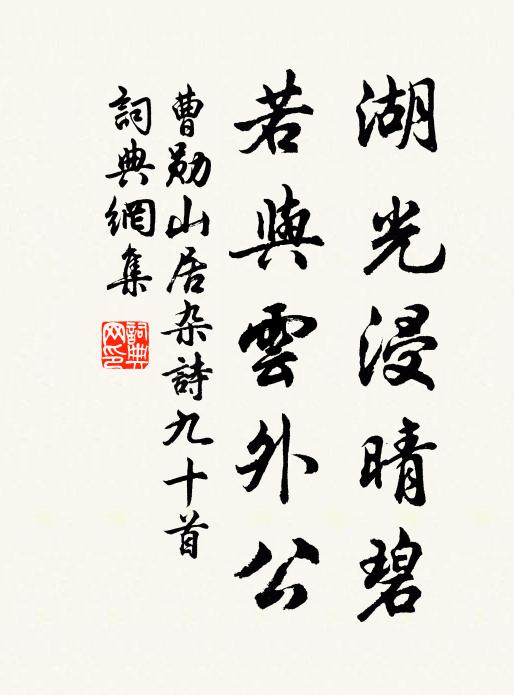 湖光浸晴碧
若與雲外公
曹勛山居杂詩九十首
詞典網集
詞典網印